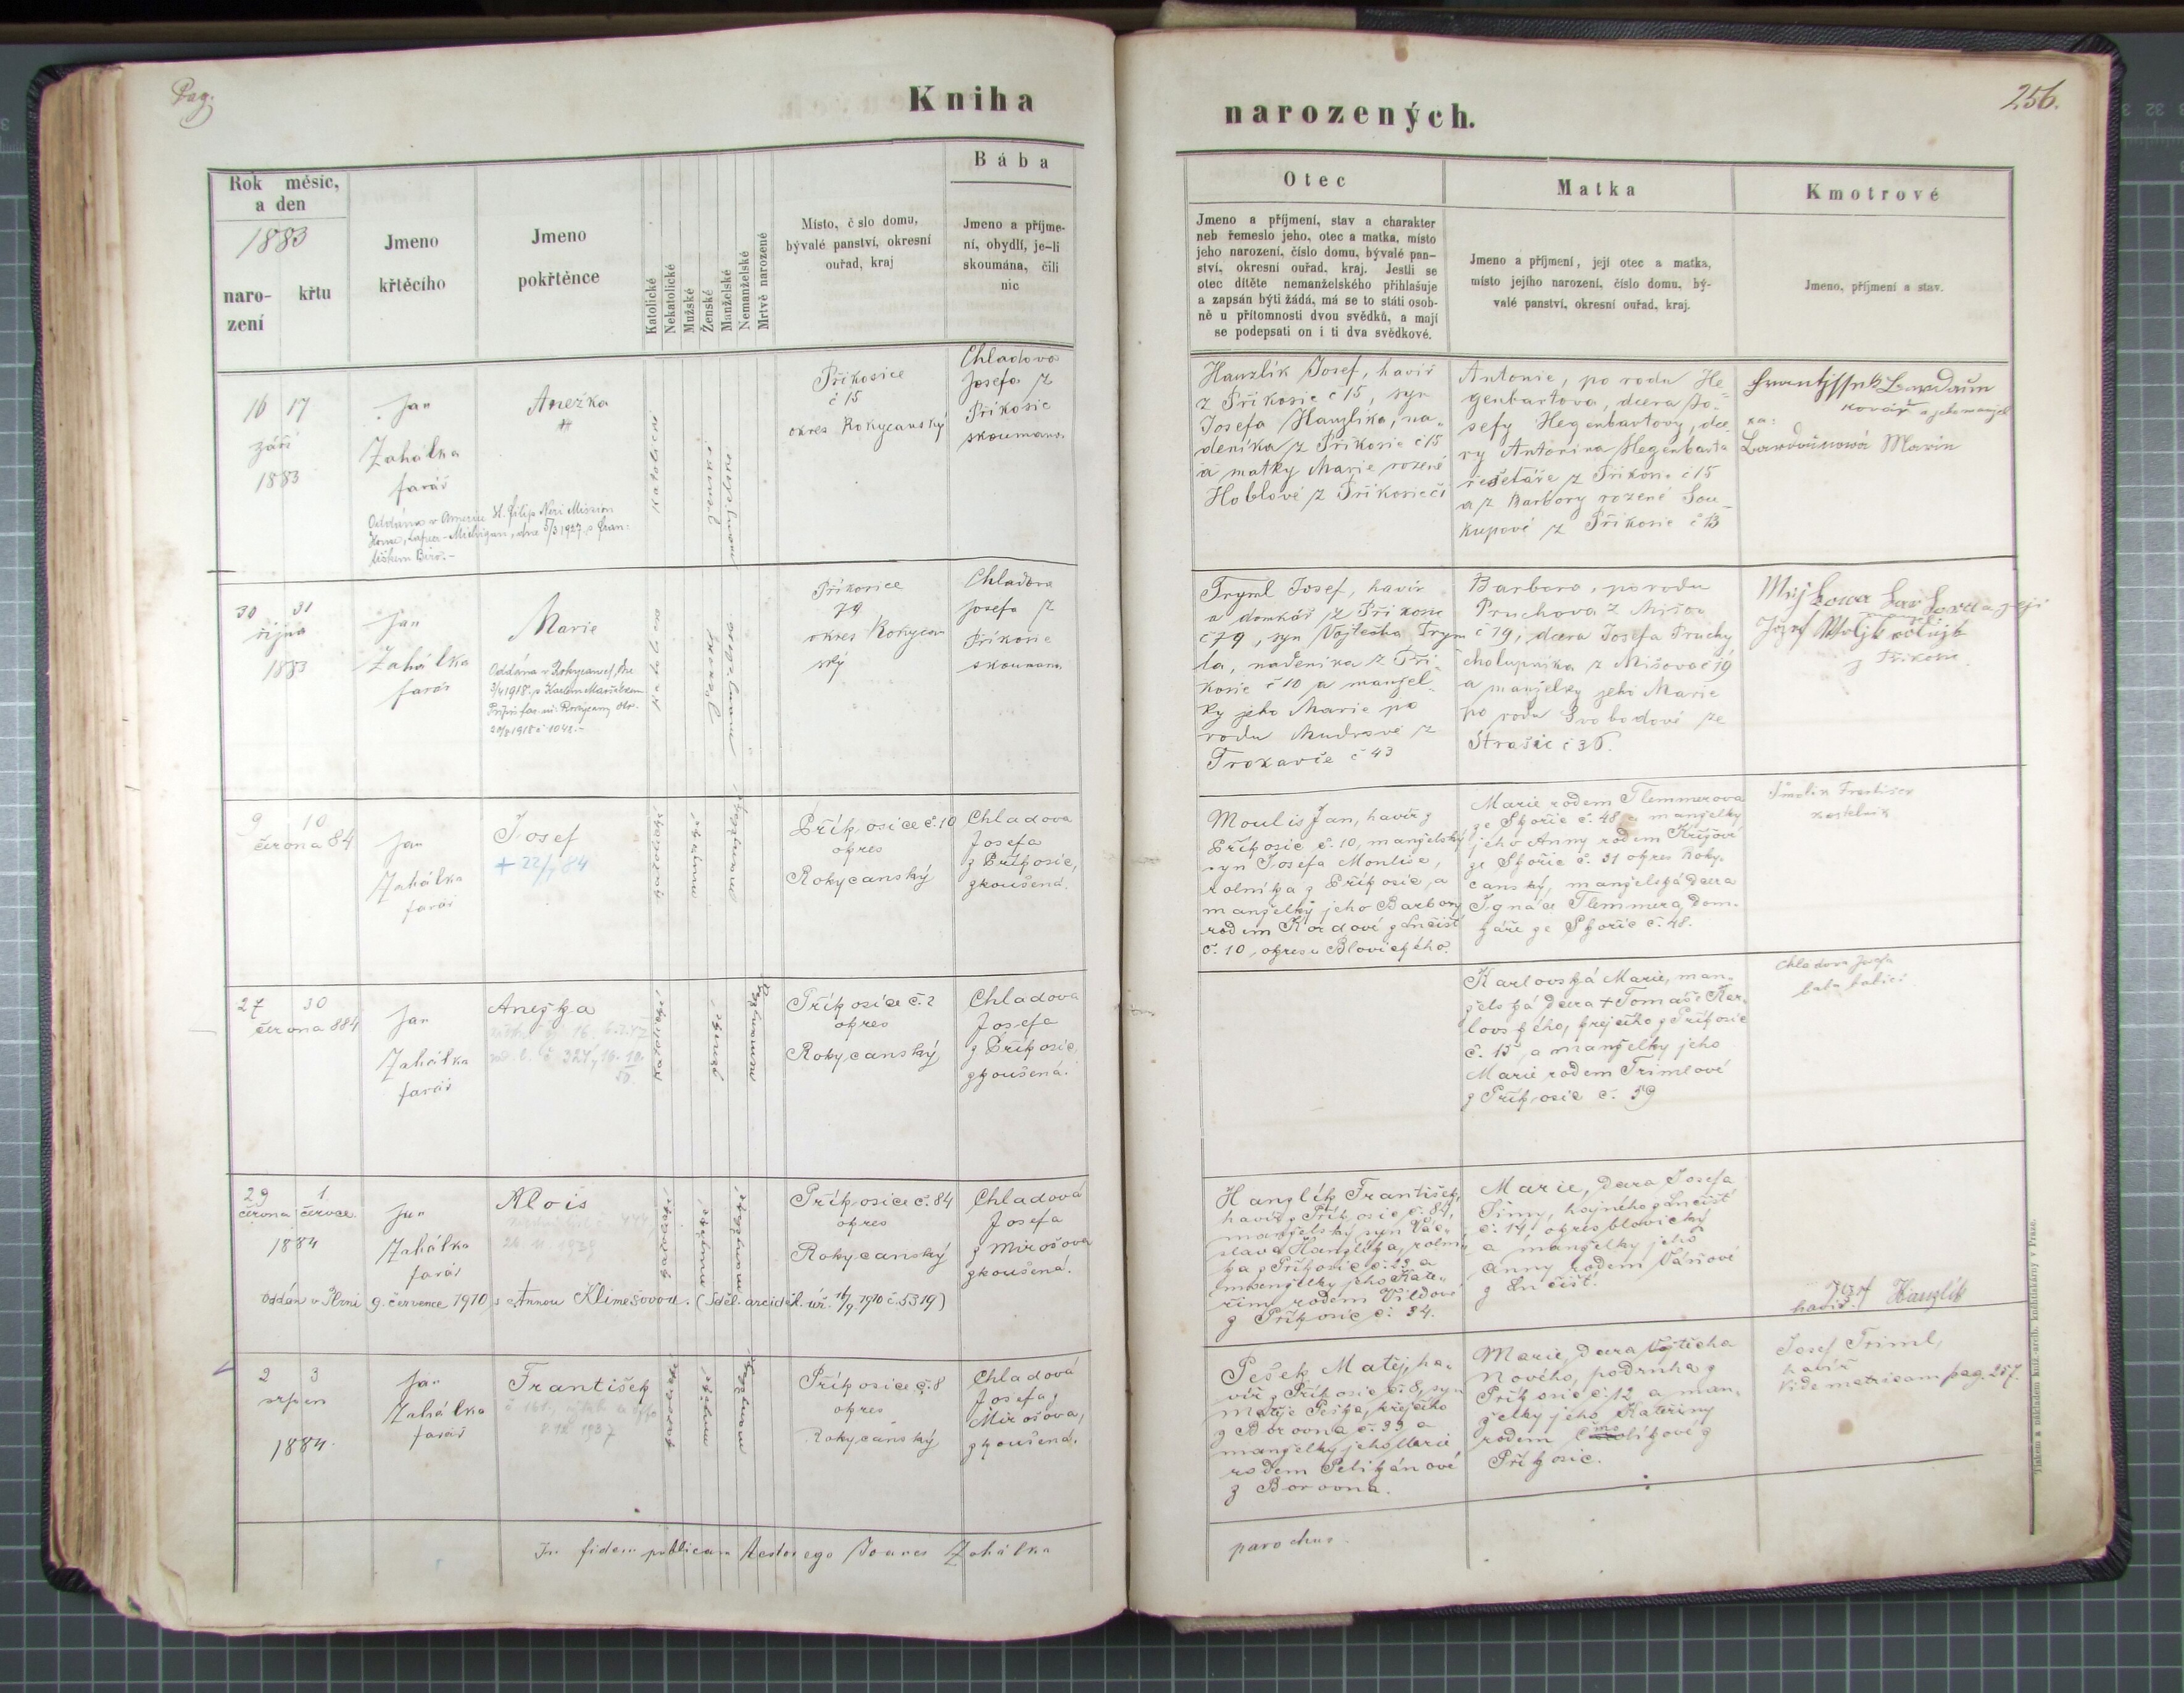 Pag.
Kniha
narozených.
256.
Rok měsíc,
a den
1883
naro-
zení
křtu
Jmeno
křtěcího
Jmeno
pokřtěnce
Katolické
Nekatolické
Mužské
Ženské
Manželské
Nemanželské
Mrtvě narozené
Místo, č slo domu,
bývalé panství, okresní
ouřad, kraj
Bába
Jmeno a příjme-
ní, obydlí, je-li
skoumána, čili
nic
Otec
Jmeno a příjmení, stav a charakter
neb řemeslo jeho, otec a matka, místo
jeho narození, číslo domu, bývalé pan-
ství, okresní ouřad, kraj. Jestli se
otec dítěte nemanželského přihlašuje
a zapsán býti žádá, má se to státi osob-
ně u přítomnosti dvou svědků, a mají
se podepsati on i ti dva svědkové.
Matka
Jmeno a příjmení, její otec a matka,
místo jejího narození, číslo domu, bý-
valé panství, okresní ouřad, kraj.
Kmotrové
Jmeno, příjmení a stav.
16 17
září
1883
Jan
Zahálka
farář
Anežka
Oddána v Americe St. Filip Neri Mission
Home, Lapeer - Michigan, dne 5/3 1927 s Fran-
tiškem
katolické
ženské
manželské
Příkosice
č 15
okres Rokycanský
Chladova
Josefa z
Příkosic
skoumana.
Hanzlík Josef, havíř
z Příkosic č 15, syn
Josefa Hanzlíka, na-
deníka z Příkosic č 15
a matky Marie rozené
Hoblové z Příkosic č
Antonie, po rodu He
genbartova, dcera Jo-
sefy Hegenbartovy, dce
ry Antonína Hegenbarta
řešetáře z Příkosic č 15
a z Barbory rozené Sou
kupové z Příkosic č 13
kovář a jeho manžel
ka:
Marie
30 31
října
1883
Jan
Zahálka
farář
Marie
Oddána v Rokycanech dne
1918 s Karlem
1918 č 1048.-
katolická
ženské
manželské
Příkosice
79
okres Rokycan
ský
Chladova
Josefa z
Příkosic
skoumana
Tryml Josef, havíř
a domkář z Příkosic
č 79, syn Vojtěcha Trym
la, nadeníka z Pří-
kosic č 10 a manžel-
ky jeho Marie po
rodu Mudrové z
Trokavče č 43
Barbora, po rodu
Pruchova z Mišov
č 19, dcera Josefa Pruchy
chalupníka z Mišova č 19
a manželky jeho Marie
po rodu Svobodové ze
Strašic č 36.
Josef
z Příkosic
9 10
června 84
Jan
Zahálka
farář
Josef
+ 22/7 84
katolické
mužské
manželské
Příkosice č. 10
okres
Rokycanský
Chladova
Josefa
z Příkosic,
zkoušená.
Moulis Jan, havíř z
Příkosic č. 10, manželský
syn Josefa Moulise,
rolníka z Příkosic, a
manželky jeho Barbory
rodem Kordové z Lučišť
č. 10, okresu Blovického.
Marie rodem Flemmerova
ze Skořic č. 48 a manželky
jeho Anny rodem Křížové
ze Skořic č. 31 okres Roky-
canský, manželská dcera
Ignáce Flemmera, dom-
káře ze Skořic č. 48.
27 30
června 884
Jan
Zahálka
farář
Anežka
katolické
ženské
nemanželská
Příkosice č. 2
okres
Rokycanský
Chladova
Josefa
z Příkosic,
zkoušená.
Karlovská Marie, man-
želská dcera + Tomáše Kar-
lovského, krejčího z Příkosic
č. 15, a manželky jeho
Marie rodem Trimlové
z Příkosic č. 59
Chladova Josefa
29 1.
června července
1884
Jan
Zahálka
farář
Alois
24. 11. 1939
katolické
mužské
manželské
Příkosice č. 84
okres
Rokycanský
Chladová
Josefa
z Mirošova
zkoušená.
Oddán v Plzni 9. července 1910 s Annou Klimešovou. (Sděl. arciděk. úř. 16/9. 1910 č. 5319)
Hanzlík František,
havíř z Příkosic č. 84,
manželský syn Vác-
slava Hanzlíka, rolní-
ka z Příkosic č. 22 a
manželky jeho Kate-
řiny rodem Vildové
z Příkosic č. 34.
Marie, dcera Josefa
Šimy, hajného z Lučišť
č. 14, okres blovický
a manželky jeho
Anny rodem Váňové
z Lučišť.
Josef Hanzlík
havíř.
2 3
srpen
1884.
Jan
Zahálka
farář
František
8. IX 1937
katolické
mužské
manželské
Příkosice č. 8
okres
Rokycanský
Chladová
Josefa z
Mirošova,
zkoušená.
Pešek Matěj, ha-
víř z Příkosic č. 8, syn
Matěje Peška, krejčího
z Borovna č. 39 a
manželky jeho Marie
rodem Pelikánové
z Borovna.
Marie, dcera Vojtěcha
Nového, podruha z
Příkosic č. 12, a man-
želky jeho Kateřiny
rodem Smolíkové z
Příkosic.
Josef Triml,
havíř
Vide matricam pag. 257.
In fidem publicam testor ego Joanes Zahálka
parochus.
Tiskem a nákladem kníž. arcib. kněhtiskárny v Praze.